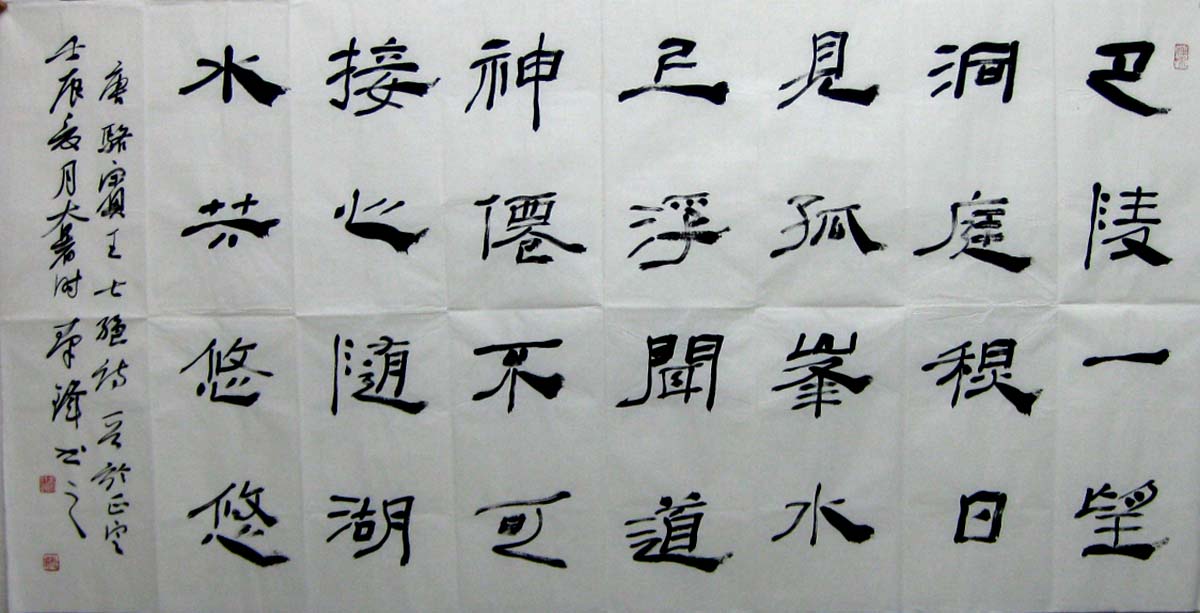 巴陵一望
洞庭穐日
見孤峯水
上浮聞道
神僊不可
接心隨湖
水共悠悠
唐駱賓王七絕詩一首於正定
壬辰夏月大暑时鋒书之